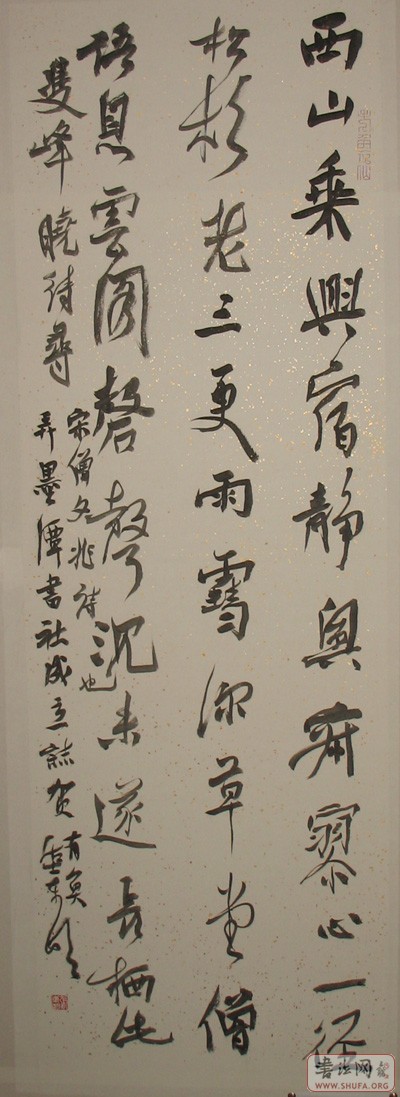 西山乘興宿靜興寂寥心一徑
松杉老三更雨雪深草堂僧
語息雲閣磬聲沉未遂長栖此
雙峰曉待尋
宋僧文兆詩也
弄墨潭書社成立誌賀
書法网
WWW.SHUFA.ORG